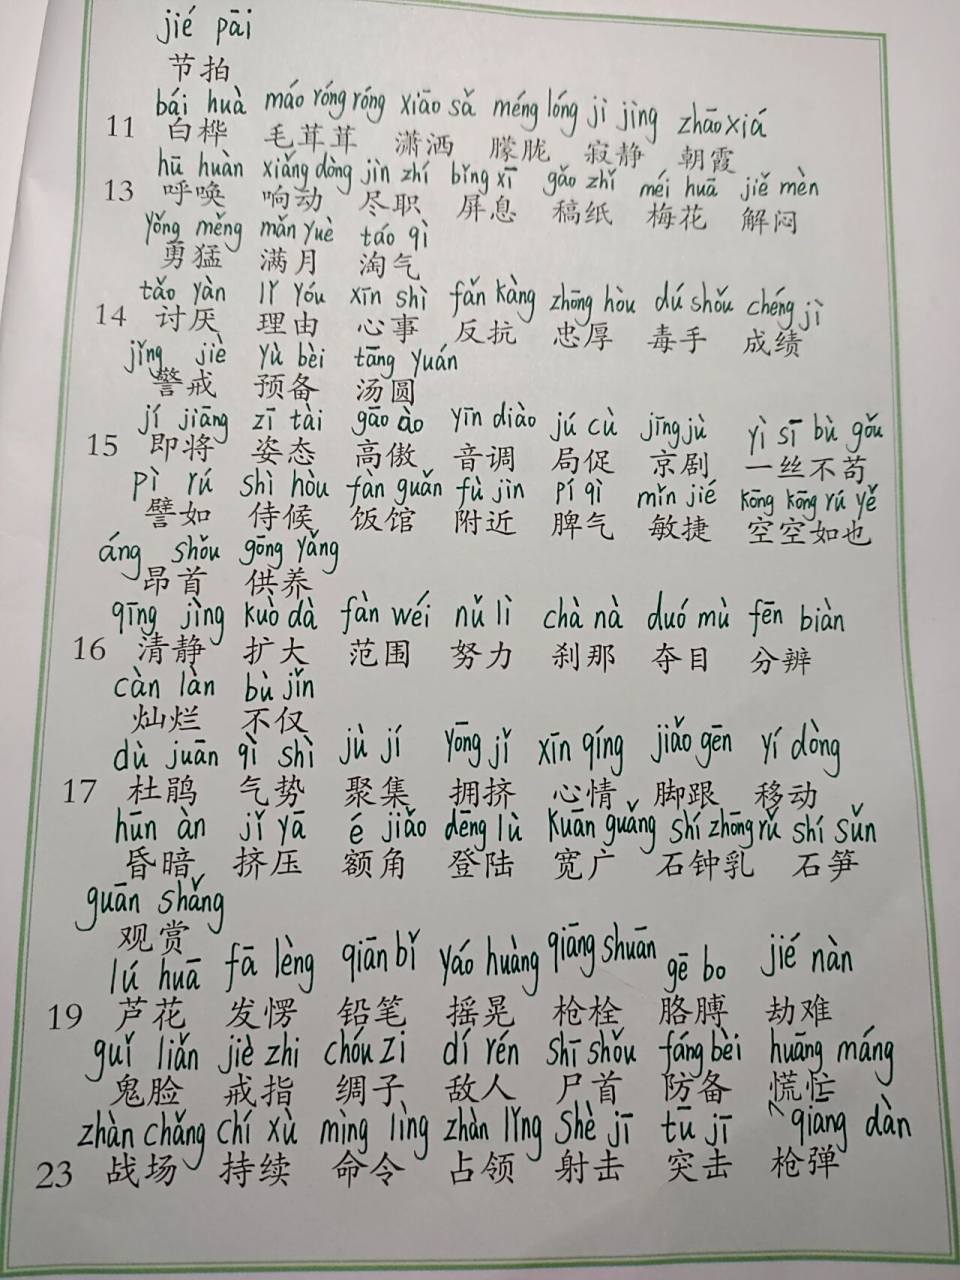 jié pāi
节拍
bái huà máo róng róng xiāo sǎ méng lóng jì jìng zhāo xiá
11 白桦 毛茸茸 潇洒 朦胧 寂静 朝霞
hū huàn xiǎng dòng jìn zhí bǐng xī gǎo zhǐ méi huā jiě mèn
13 呼唤 响动 尽职 屏息 稿纸 梅花 解闷
yǒng měng mǎn yuè táo qì
勇猛 满月 淘气
tǎo yàn lǐ yóu xīn shì fǎn kàng zhōng hòu dú shǒu chéng jì
14 讨厌 理由 心事 反抗 忠厚 毒手 成绩
jǐng jiè yù bèi tāng yuán
警戒 预备 汤圆
jí jiāng zī tài gāo ào yīn diào jú cù jīng jù yì sī bù gǒu
15 即将 姿态 高傲 音调 局促 京剧 一丝不苟
pì rú shì hòu fàn guǎn fù jìn pí qì mǐn jié kōng kōng rú yě
譬如 侍候 饭馆 附近 脾气 敏捷 空空如也
áng shǒu gōng yǎng
昂首 供养
qīng jìng kuò dà fàn wéi nǔ lì chà nà duó mù fēn biàn
16 清静 扩大 范围 努力 刹那 夺目 分辨
càn làn bù jǐn
灿烂 不仅
dù juān qì shì jù jí yōng jǐ xīn qíng jiǎo gēn yí dòng
17 杜鹃 气势 聚集 拥挤 心情 脚跟 移动
hūn àn jǐ yā é jiǎo dēng lù kuān guǎng shí zhōng rǔ shí sǔn
昏暗 挤压 额角 登陆 宽广 石钟乳 石笋
guān shǎng
观赏
lú huā fā lèng qiān bǐ yáo huàng qiāng shuān gē bo jié nàn
19 芦花 发愣 铅笔 摇晃 枪栓 胳膊 劫难
guǐ liǎn jiè zhi chóu zi dí rén shī shǒu fáng bèi huāng máng
鬼脸 戒指 绸子 敌人 尸首 防备 慌忙
zhàn chǎng chí xù mìng lìng zhàn lǐng shè jī tū jī qiang dàn
23 战场 持续 命令 占领 射击 突击 枪弹